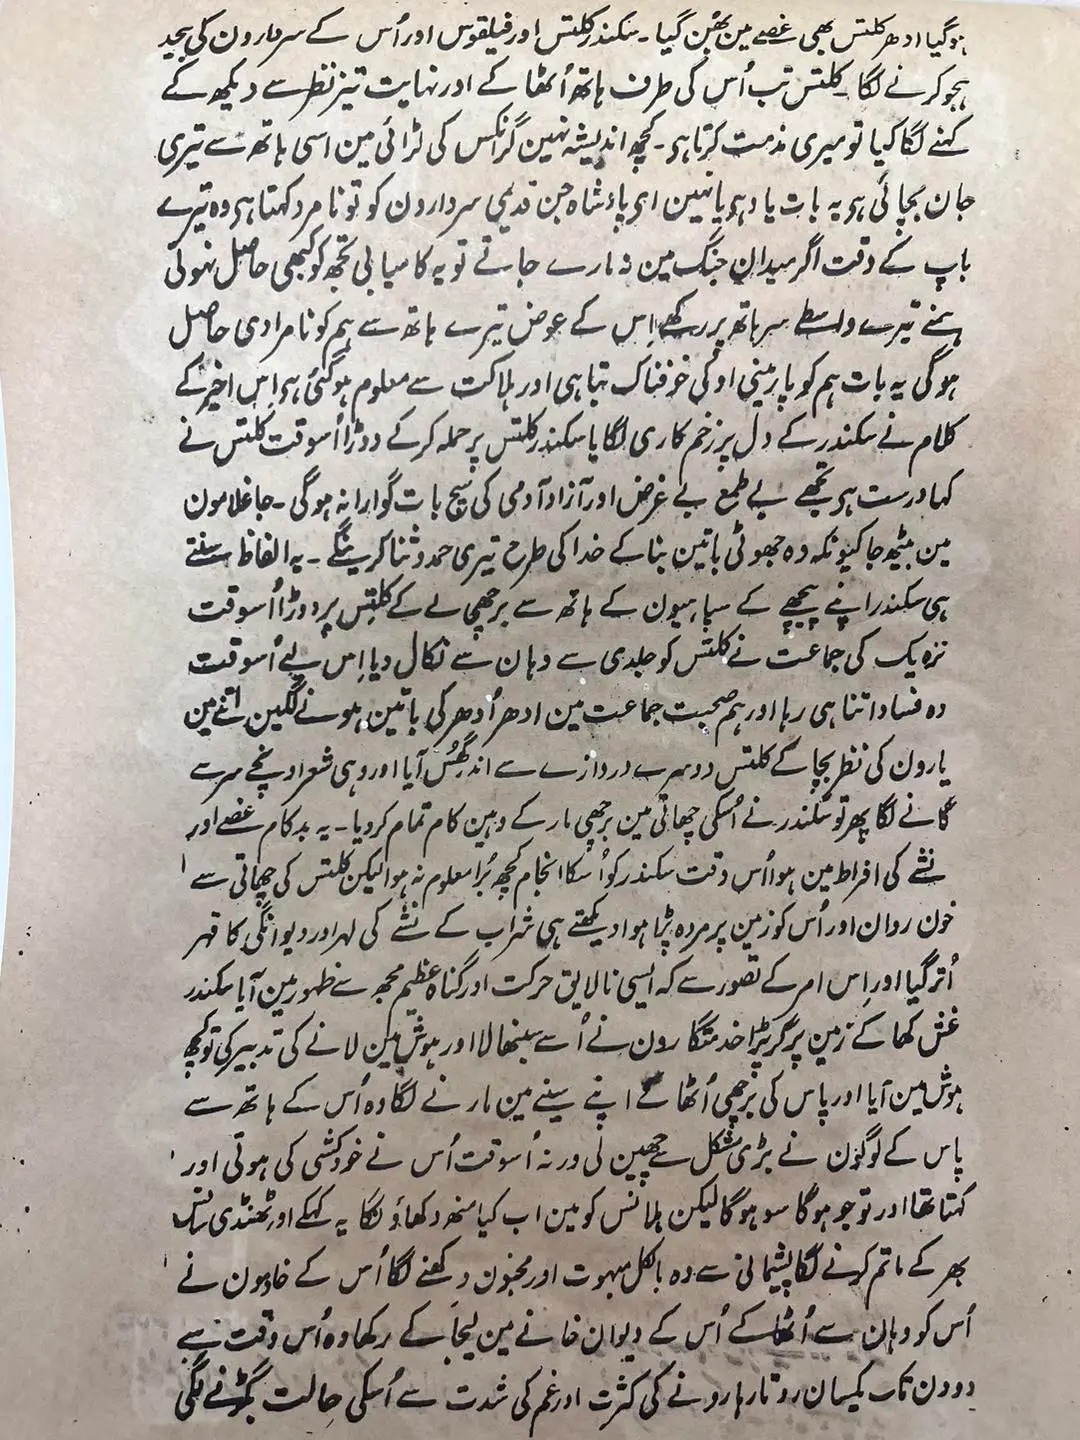 ہوگیا ادھر کلتس بھی غصے مین بھُن گیا۔ سکندر کلتس اور فیلقوس اور اُس کے سردارون کی بیحد
ہجو کرنے لگا۔ کلتس تب اُس کی طرف ہاتھ اُٹھا کے اور نہایت تیز نظر سے دیکھ کے
کہنے لگا کیا تو میری مذمت کرتا ہی۔ کچھ اندیشہ نہین گرانکس کی لڑائی مین اسی ہاتھ سے تیری
جان بچائی ہی یہ بات یاد ہی یا نہین ای پادشاہ جن قدیمی سردارون کو تو نامرد کہتا ہی وہ تیرے
باپ کے وقت اگر میدان جنگ مین نہ مارے جاتے تو یہ کامیابی تجھ کو کبھی حاصل نہوتی
ہمنے تیرے واسطے سر ہاتھ پر رکھے اِس کے عوض تیرے ہاتھ سے ہم کو نامرادی حاصل
ہوگی یہ بات ہم کو پارمینی او کی خوفناک تباہی اور ہلاکت سے معلوم ہوگئی ہی اِس اخیر کے
کلام نے سکندر کے دل پر زخم کاری لگایا سکندر کلتس پر حملہ کرکے دوڑا اُسوقت کلتس نے
کہا درست ہی تجھے بے طمع بے غرض اور آزاد آدمی کی سچ بات گوارا نہ ہوگی۔ جا غلامون
مین بیٹھ جا کیونکہ وہ جھوٹی باتین بنا کے خدا کی طرح تیری حمد و ثنا کرینگے۔ یہ الفاظ سنتے
ہی سکندر اپنے پیچھے کے سپاہیون کے ہاتھ سے برچھی لے کے کلتس پر دوڑا اُسوقت
نزدیک کی جماعت نے کلتس کو جلدی سے وہان سے نکال دیا اِس لیے اُسوقت
وہ فساد اتنا ہی رہا اور ہم صحبت جماعت مین ادھر اُدھر کی باتین ہونے لگین اتنے مین
یارون کی نظر بچا کے کلتس دوسرے دروازے سے اندر گھُس آیا اور وہی شعر اونچے سر سے
گانے لگا پھر تو سکندر نے اُسکی چھاتی مین برچھی مار کے وہین کام تمام کردیا۔ یہ بدکام غصے اور
نشے کی افراط مین ہوا اُس وقت سکندر کو اُسکا انجام کچھ بُرا معلوم نہ ہوا لیکن کلتس کی چھاتی سے
خون روان اور اُس کو زمین پر مردہ پڑا ہوا دیکھتے ہی شراب کے نشے کی لہر اور دیوانگی کا قہر
اُتر گیا اور اِس امر کے تصور سے کہ ایسی نالایق حرکت اور گناہ عظیم مجھ سے ظہور مین آیا سکندر
غش کھا کے زمین پر گر پڑا خدمتگارون نے اُسے سنبھالا اور ہوش مین لانے کی تدبیر کی تو کچھ
ہوش مین آیا اور پاس کی برچھی اُٹھا کے اپنے سینے مین مارنے لگا وہ اُس کے ہاتھ سے
پاس کے لوگون نے بڑی مشکل سے چھین لی ورنہ اُسوقت اُس نے خودکشی کی ہوتی اور
کہتا تھا اور تو جو ہوگا سو ہوگا لیکن ہلانس کو مین اب کیا منھ دکھاؤ نگا یہ کہکے اور ٹھنڈی سانس
بھر کے ماتم کرنے لگا پشیمانی سے وہ بالکل مبہوت اور مجنون دکھنے لگا اُس کے خادمون نے
اُس کو وہان سے اُٹھا کے اُس کے دیوان خانے مین لیجا کے رکھا وہ اُس وقت سے
دو دن تک یکسان روتا رہا رونے کی کثرت اور غم کی شدت سے اُسکی حالت بگڑنے لگی